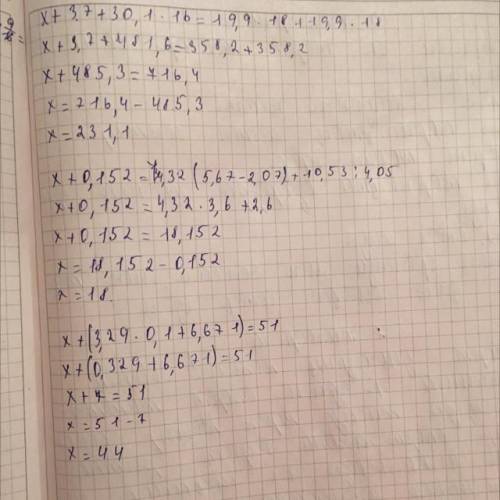 x + 3,7 + 30,1 · 16 = 19,9 · 18 + 19,9 · 18
x + 3,7 + 481,6 = 358,2 + 358,2
x + 485,3 = 716,4
x = 716,4 - 485,3
x = 231,1
x + 0,152 = 4,32 (5,67 - 2,07) + 10,53 : 4,05
x + 0,152 = 4,32 · 3,6 + 2,6
x + 0,152 = 18,152
x = 18,152 - 0,152
x = 18.
x + (3,29 · 0,1 + 6,671) = 51
x + (0,329 + 6,671) = 51
x + 7 = 51
x = 51 - 7
x = 44